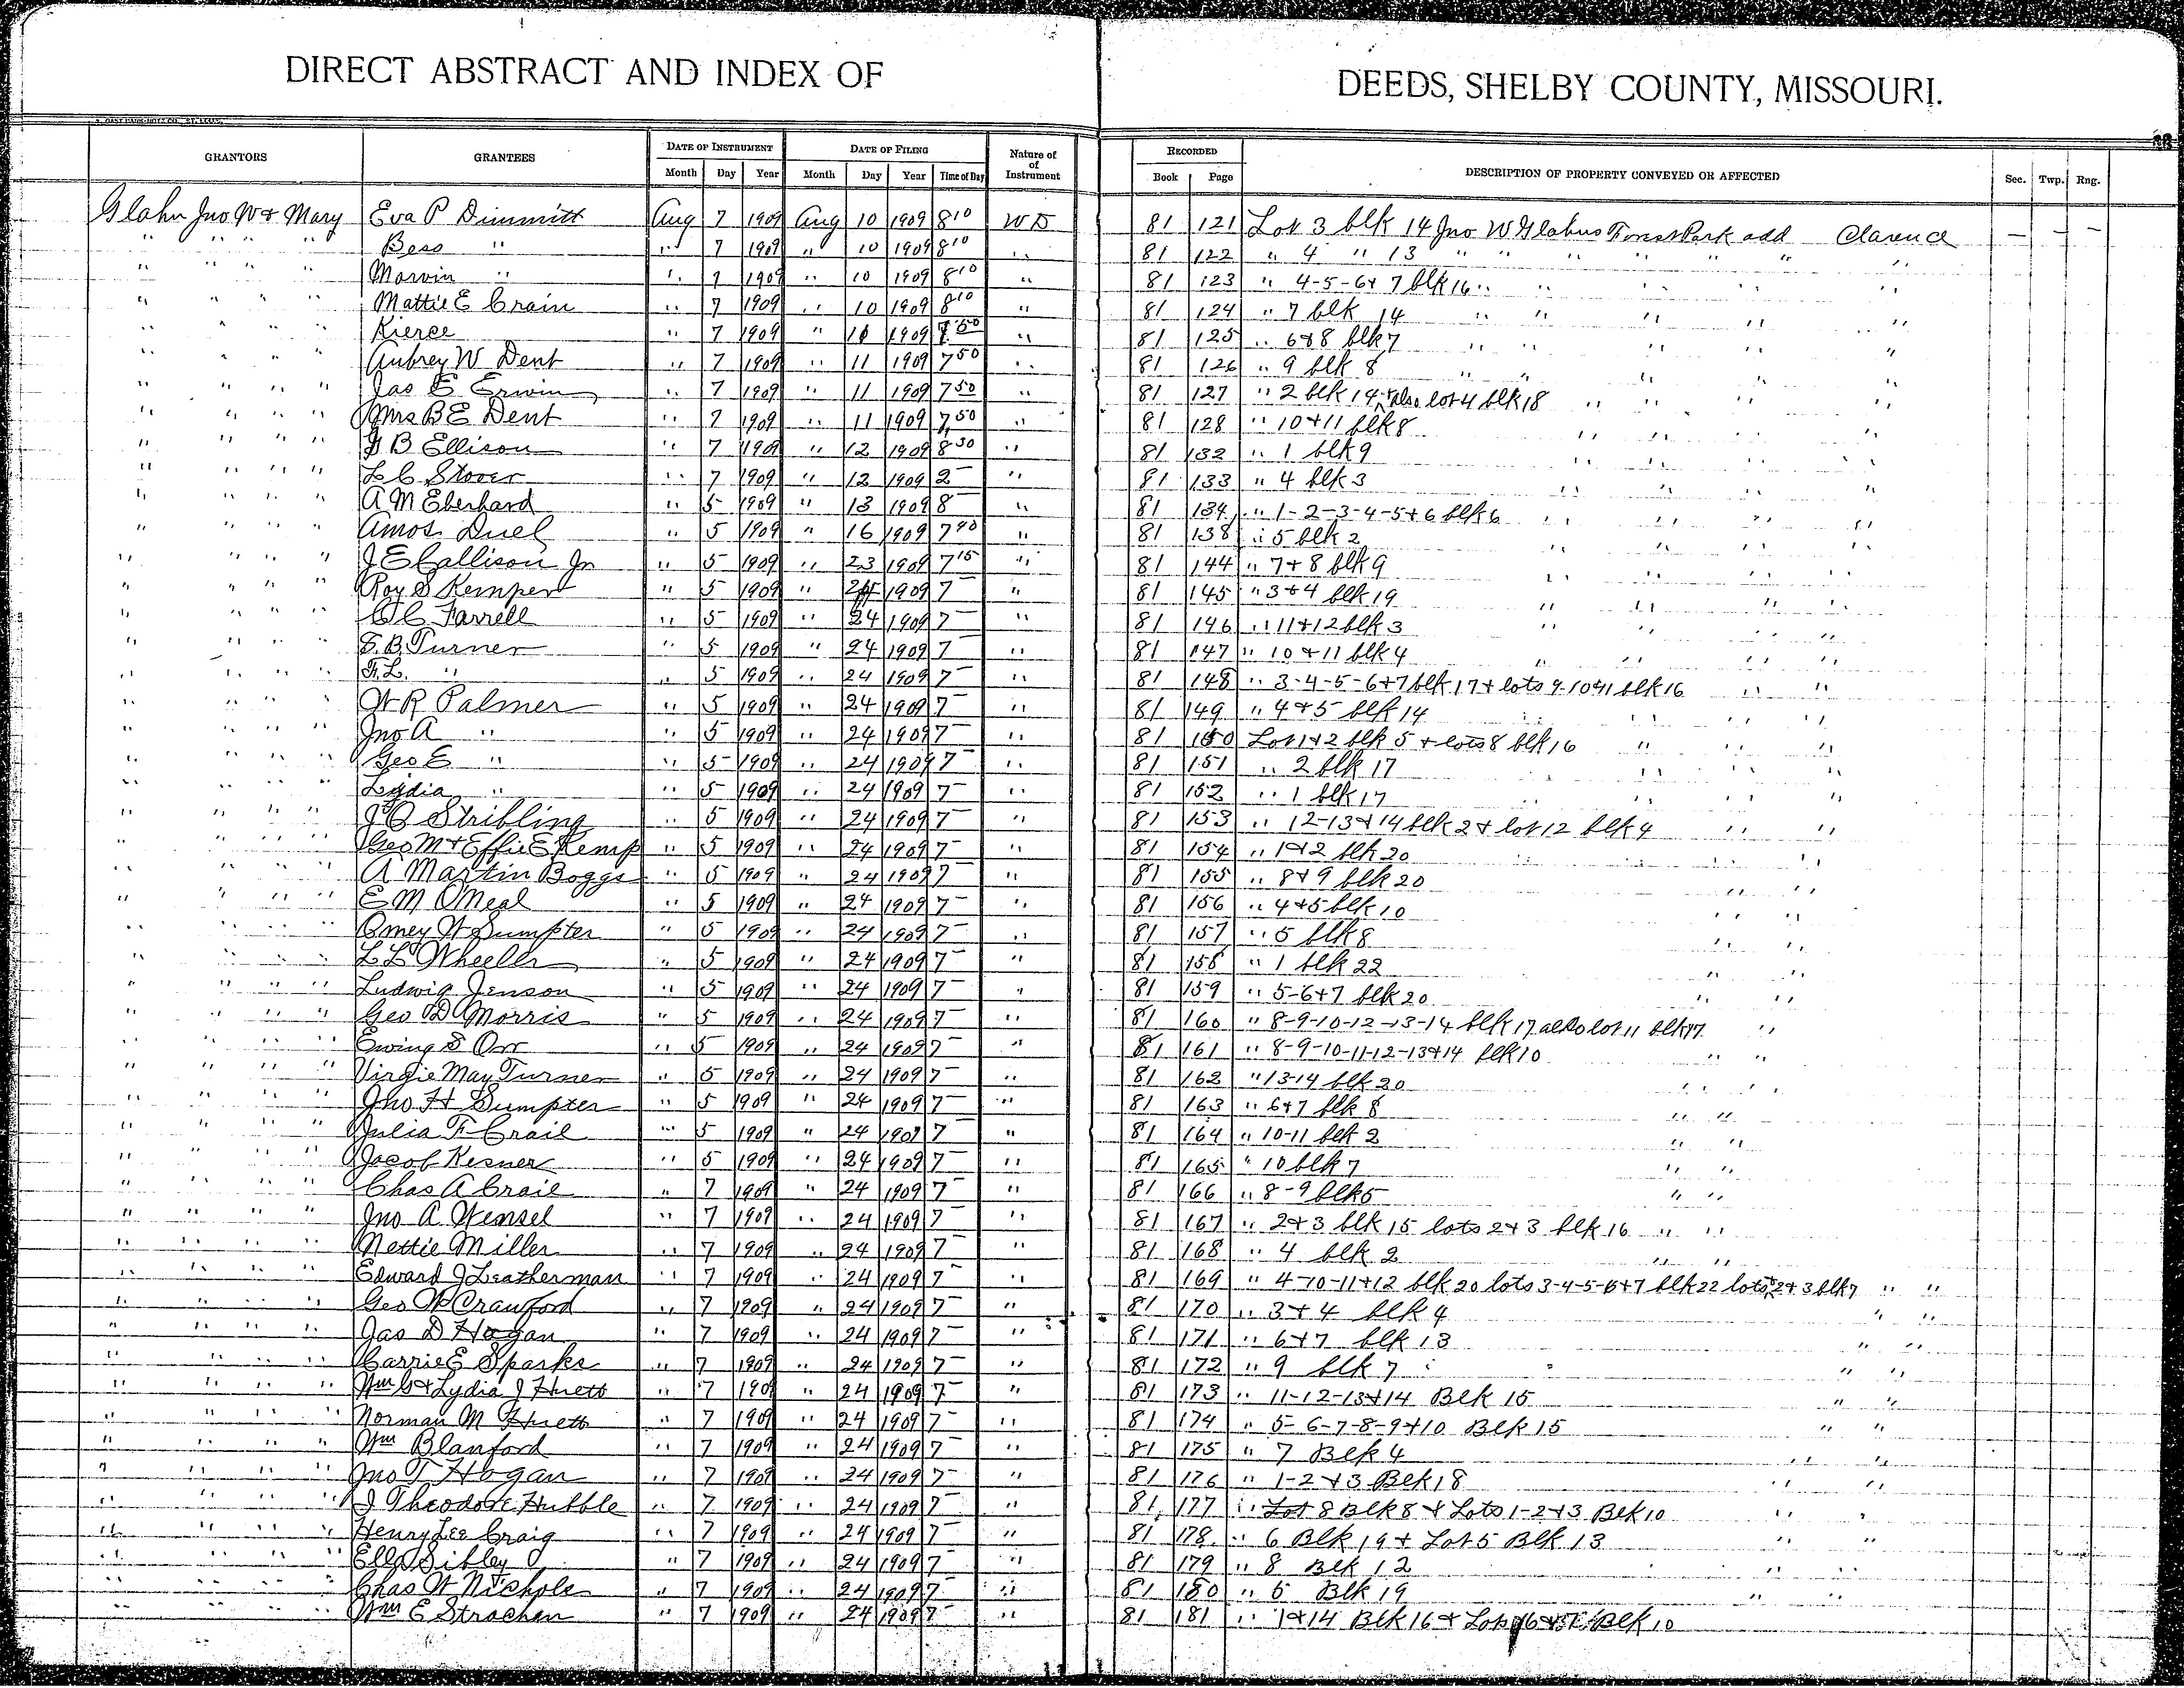 DIRECT ABSTRACT AND INDEX OF DEEDS, SHELBY COUNTY, MISSOURI.
GRANTORS GRANTEES DATE OF INSTRUMENT DATE OF FILING Nature of of Instrument RECORDED DESCRIPTION OF PROPERTY CONVEYED OR AFFECTED Sec. Twp. Rng.
Month Day Year Month Day Year Time of Day Book Page
Glahn Jno W & Mary Eva P Dimmitt Aug 7 1909 Aug 10 1909 8 10 WD 81 121 Lot 3 blk 14 Jno W Glahns Forest Park add Clarence — — —
" " " " Bess " " 7 1909 " 10 1909 8 10 " 81 122 " 4 " 13 " " " " " " "
" " " " Marvin " " 7 1909 " 10 1909 8 10 " 81 123 " 4-5-6 & 7 blk 16 " " " " " "
" " " " Mattie E Crain " 7 1909 " 10 1909 8 10 " 81 124 " 7 blk 14 " " " " "
" " " " Kierce " 7 1909 " 10 1909 50 " 81 125 " 6 & 8 blk 7 " " " " "
" " " " Aubrey W Dent " 7 1909 " 11 1909 7 50 " 81 126 " 9 blk 8 " " " " "
" " " " Jas E Erwin " 7 1909 " 11 1909 7 50 " 81 127 " 2 blk 14, also lot 4 blk 18 " " " " "
" " " " Mrs B E Dent " 7 1909 " 11 1909 7 50 " 81 128 " 10 & 11 blk 8 " " " "
" " " " B Ellison " 7 1909 " 12 1909 8 30 " 81 132 " 1 blk 9 " " " "
" " " " L C Stover " 7 1909 " 12 1909 2 — " 81 133 " 4 blk 3 " " " "
" " " " A M Eberhard " 5 1909 " 13 1909 8 — " 81 134 " 1-2-3-4-5 & 6 blk 6 " " " "
" " " " Amos Duel " 5 1909 " 16 1909 7 40 " 81 138 " 5 blk 2 " " " "
" " " " J E Callison Jr " 5 1909 " 23 1909 7 15 " 81 144 " 7 & 8 blk 9 " " " "
" " " " Roy S Kemper " 5 1909 " 24 1909 7 — " 81 145 " 3 & 4 blk 19 " " " "
" " " " O C Farrell " 5 1909 " 24 1909 7 — " 81 146 " 11 & 12 blk 3 " " " "
" " " " Turner " 5 1909 " 24 1909 7 — " 81 147 " 10 & 11 blk 4 " " " "
" " " " F. L. " " 5 1909 " 24 1909 7 — " 81 148 " 3-4-5-6 & 7 blk 17 & lots 9-10 & 11 blk 16 " "
" " " " W R Palmer " 5 1909 " 24 1909 7 — " 81 149 " 4 & 5 blk 14 " " " "
" " " " Jno A " " 5 1909 " 24 1909 7 — " 81 150 Lot 1 & 2 blk 5 & lots 8 blk 16 " " "
" " " " Geo E " " 5 1909 " 24 1909 7 — " 81 151 " 2 blk 17 " " " "
" " " " Lydia " " 5 1909 " 24 1909 7 — " 81 152 " 1 blk 17 " " " "
" " " " Stribling " 5 1909 " 24 1909 7 — " 81 153 " 12-13 & 14 blk 2 & lot 12 blk 4 " "
" " " " Geo M & Effie E Kemp " 5 1909 " 24 1909 7 — " 81 154 " 1 & 2 blk 20 " " " "
" " " " A Martin Boggs " 5 1909 " 24 1909 7 " 81 155 " 8 & 9 blk 20 " "
" " " " E M O'Neal " 5 1909 " 24 1909 7 — " 81 156 " 4 & 5 blk 10 " "
" " " " Omey W Sumpter " 5 1909 " 24 1909 7 — " 81 157 " 5 blk 8 " "
" " " " L L Wheeler " 5 1909 " 24 1909 7 — " 81 158 " 1 blk 22 " "
" " " " Ludwig Jenson " 5 1909 " 24 1909 7 — " 81 159 " 5-6 & 7 blk 20 " "
" " " " Geo D Morris " 5 1909 " 24 1909 7 — " 81 160 " 8-9-10-12-13-14 blk 17 also lot 11 blk 17 "
" " " " Ewing S Orr " 5 1909 " 24 1909 7 — " 81 161 " 8-9-10-11-12-13 & 14 blk 10 " "
" " " " Virgie May Turner " 5 1909 " 24 1909 7 — " 81 162 " 13-14 blk 20 " "
" " " " Jno H Sumpter " 5 1909 " 24 1909 7 — " 81 163 " 6 & 7 blk 8 " "
" " " " Julia F Crail " 5 1909 " 24 1909 7 — " 81 164 " 10-11 blk 2 " "
" " " " Jacob Kesner " 5 1909 " 24 1909 7 — " 81 165 " 10 blk 7 " "
" " " " Chas A Crail " 7 1909 " 24 1909 7 — " 81 166 " 8-9 blk 5 " "
" " " " Jno A Wensel " 7 1909 " 24 1909 7 — " 81 167 " 2 & 3 blk 15 lots 2 & 3 blk 16 " "
" " " " Nettie Miller " 7 1909 " 24 1909 7 — " 81 168 " 4 blk 2 " "
" " " " Edward J Leatherman " 7 1909 " 24 1909 7 — " 81 169 " 4-10-11 & 12 blk 20 lots 3-4-5-6 & 7 blk 22 lots 2 & 3 blk 7 " "
" " " " Geo W Crawford " 7 1909 " 24 1909 7 — " 81 170 " 3 & 4 blk 4 " "
" " " " Jas D Hogan " 7 1909 " 24 1909 7 — " 81 171 " 6 & 7 blk 13 " "
" " " " Carrie E Sparks " 7 1909 " 24 1909 7 — " 81 172 " 9 blk 7 " "
" " " " Wm & Lydia J Huett " 7 1909 " 24 1909 7 — " 81 173 " 11-12-13 & 14 Blk 15 " "
" " " " Norman M Huett " 7 1909 " 24 1909 7 — " 81 174 " 5-6-7-8-9 & 10 Blk 15 " "
" " " " Wm Blanford " 7 1909 " 24 1909 7 — " 81 175 " 7 Blk 4 " "
" " " " Jno T Hogan " 7 1909 " 24 1909 7 — " 81 176 " 1-2 & 3 Blk 18 " "
" " " " J Theodore Hubble " 7 1909 " 24 1909 7 — " 81 177 " Lot 8 Blk 8 & Lots 1-2 & 3 Blk 10 " "
" " " " Henry Lee Craig " 7 1909 " 24 1909 7 — " 81 178 " 6 Blk 19 & Lot 5 Blk 13 " "
" " " " Ella Sibley " 7 1909 " 24 1909 7 — " 81 179 " 8 Blk 12 " "
" " " " Chas W Nichols " 7 1909 " 24 1909 7 — " 81 180 " 5 Blk 19 " "
" " " " Wm E Strachan " 7 1909 " 24 1909 7 — " 81 181 " 1 & 14 Blk 16 & Lots Blk 10